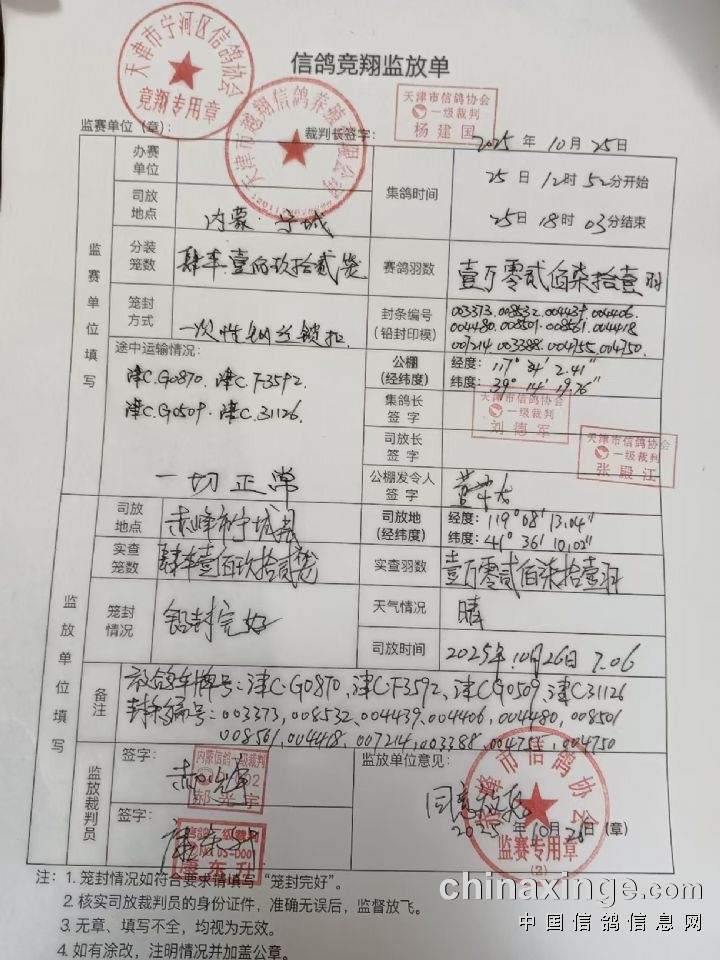 信鸽竞翔监放单
天津市宁河区信鸽协会
竞翔专用章
天津市信鸽协会
一级裁判
杨建国
监赛单位(章):
裁判长签字:
2025年10月25日
监赛单位填写
办赛单位
集鸽时间
25日12时52分开始
25日18时03分结束
司放地点
内蒙 宁城
分装笼数
肆车.壹佰玖拾贰笼
赛鸽羽数
壹万零贰佰柒拾壹羽
笼封方式
一次性钢丝锁扣.
封条编号(铅封印模)
003373.008532.004439.004406.
004480.008501.008561.004418
007214.003388.004755.004750.
途中运输情况:
津C.G0870.津C.F3592.
津C.G0509.津C.31126.
一切正常
公棚(经纬度)
经度:117° 34′ 2.41″
纬度:39° 14′ 19.76″
集鸽长签字
天津市信鸽协会
一级裁判
刘德军
司放长签字
天津市信鸽协会
一级裁判
张殿江
公棚发令人签字
监放单位填写
司放地点
赤峰市宁城县
司放地(经纬度)
经度:119°08′13.04″
纬度:41°36′10.02″
实查笼数
肆车壹佰玖拾贰笼
实查羽数
壹万零贰佰柒拾壹羽
笼封情况
铅封完好
天气情况
晴
司放时间
2025年10月26日 7.06
备注
放鸽车牌号:津C.G0870、津C.F3592、津CG0509、津C31126
封条编号:003373,008532,004439,004406,004480,008501
008561,004418,007214,003388,004755,004750
监放裁判员
签字:
内蒙信鸽一级裁判
郝光宇
签字:
康东升
监放单位意见:
同意放飞
2025年10月26日(章)
赤峰市信鸽协会
监赛专用章
(2)
注:1.笼封情况如符合要求请填写“笼封完好”。
2.核实司放裁判员的身份证件,准确无误后,监督放飞。
3.无章、填写不全,均视为无效。
4.如有涂改,注明情况并加盖公章。
chinaxinge.com
中国信鸽信息网